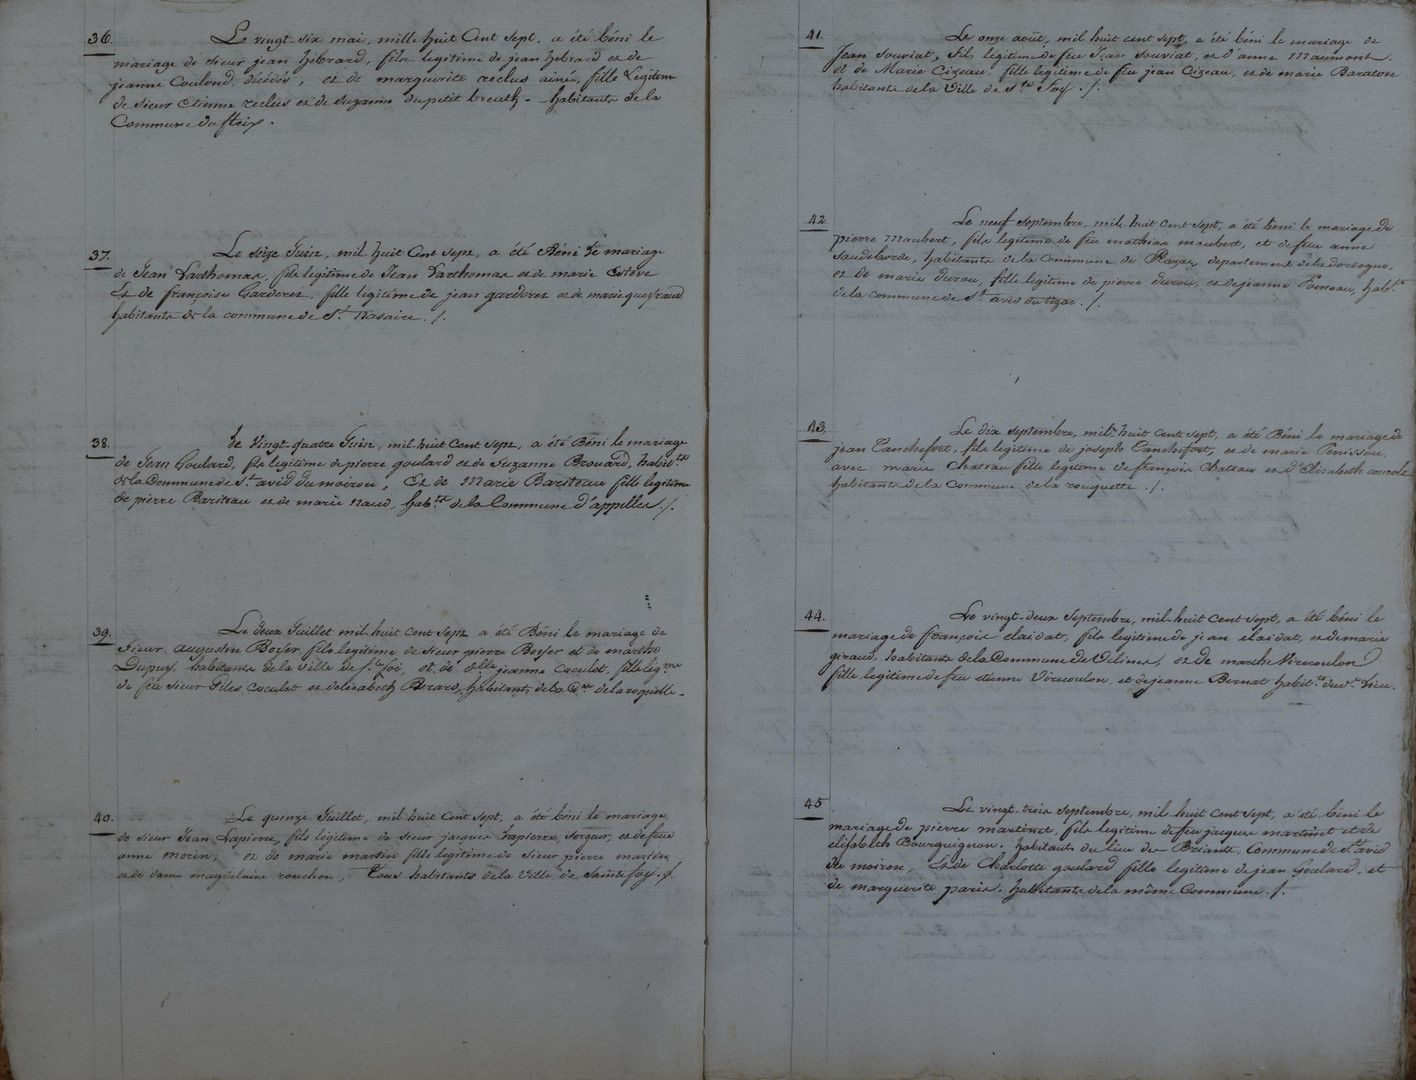 36. Le vingt-six mai, mille huit Cent sept, a été béni le
mariage de sieur jean hébrard, fils légitime de jean hébrard et de
jeanne Coulond, décédés, et de marguerite reclus ainée, fille Légitime
de sieur etienne reclus et de suzanne du petit breuilh - habitants de la
Commune du fleix.
37. Le seize Juin, mil huit Cent sept, a été Béni le mariage
de Jean Larthomas, fils legitime de Jean Larthomas et de marie Estève
Et de françoise Garderes, fille légitime de jean garderes et de marie queyraud
habitants de la commune de St. Nazaire. /.
38. Le Vingt-quatre Juin, mil huit Cent sept, a été Béni le mariage
de Jean Goulard, fils legitime de pierre goulard et de Suzanne Brouard, habit.ts
de la Commune de St. avid du moiron, Et de Marie Bariteau fille legitime
de pierre Bariteau et de marie naud, hab.ts de la Commune d'appelles. /.
39. Le deux Juillet mil huit Cent sept a été Béni le mariage de
Sieur augustin Boyer fils legitime de sieur pierre Boyer et de marthe
Dupuy, habitants de la ville de Ste foi, et de dlle jeanne Coculet, fille leg.me
de feu sieur Giles coculet et delisabeth Berard, habitants de la C.ne de la roquille -
40. Le quinze Juillet, mil huit Cent sept, a été béni le mariage
de sieur Jean Lapierre, fils légitime de sieur jacques Lapierre, sergeur, et de feue
anne morin; et de marie martin fille legitime de sieur pierre martin
et de dame magdelaine rouchon, Tous habitants de la Ville de Sainte foy. /.
41. Le onze août, mil huit cent sept, a été béni le mariage de
Jean souviat, fils légitime de feu Jean souviat, et d'anne maumont,
et de Marie Cizeau, fille légitime de feu jean Cizeau, et de marie Baratou
habitants de la Ville de Ste foy. /.
42 Le neuf septembre, mil huit Cent sept, a été beni le mariage de
pierre maubert, fils legitime de feu mathias maubert, et de feu anne
habitants de la Commune de Razac, departement de la dordogne,
et de marie durou, fille legitime de pierre durou, et de jeanne hab.ts
de la commune de St. avid du tizac. /.
43. Le dix septembre, mil huit Cent sept, a été Béni le mariage de
jean Tanchefort, fils légitime de joseph Tanchefort, et de marie
avec marie Chateau fille legitime de françois Chateau et d'Elisabeth
habitants de la Commune de la rouquette. /.
44. Le vingt-deux Septembre, mil huit Cent sept, a été béni le
mariage de françois elaidat, fils légitime de jean elaidat, et de marie
giraud, habitants de la Commune de Velines, et de marthe Vircoulon
fille legitime de feu etienne Vircoulon, et de jeanne Bernat habit.ts du d.t lieu.
45 Le vingt-trois septembre, mil huit Cent sept, a été béni le
mariage de pierre martinet, fils legitime de feu jacques martinet et de
elisabeth Bourguignon, habitants du lieu de Briante, Commune de St. avid
de moiron, Et de Charlotte goulard fille legitime de jean Goulard, et
de marguerite paris, habitants de la même Commune. /.